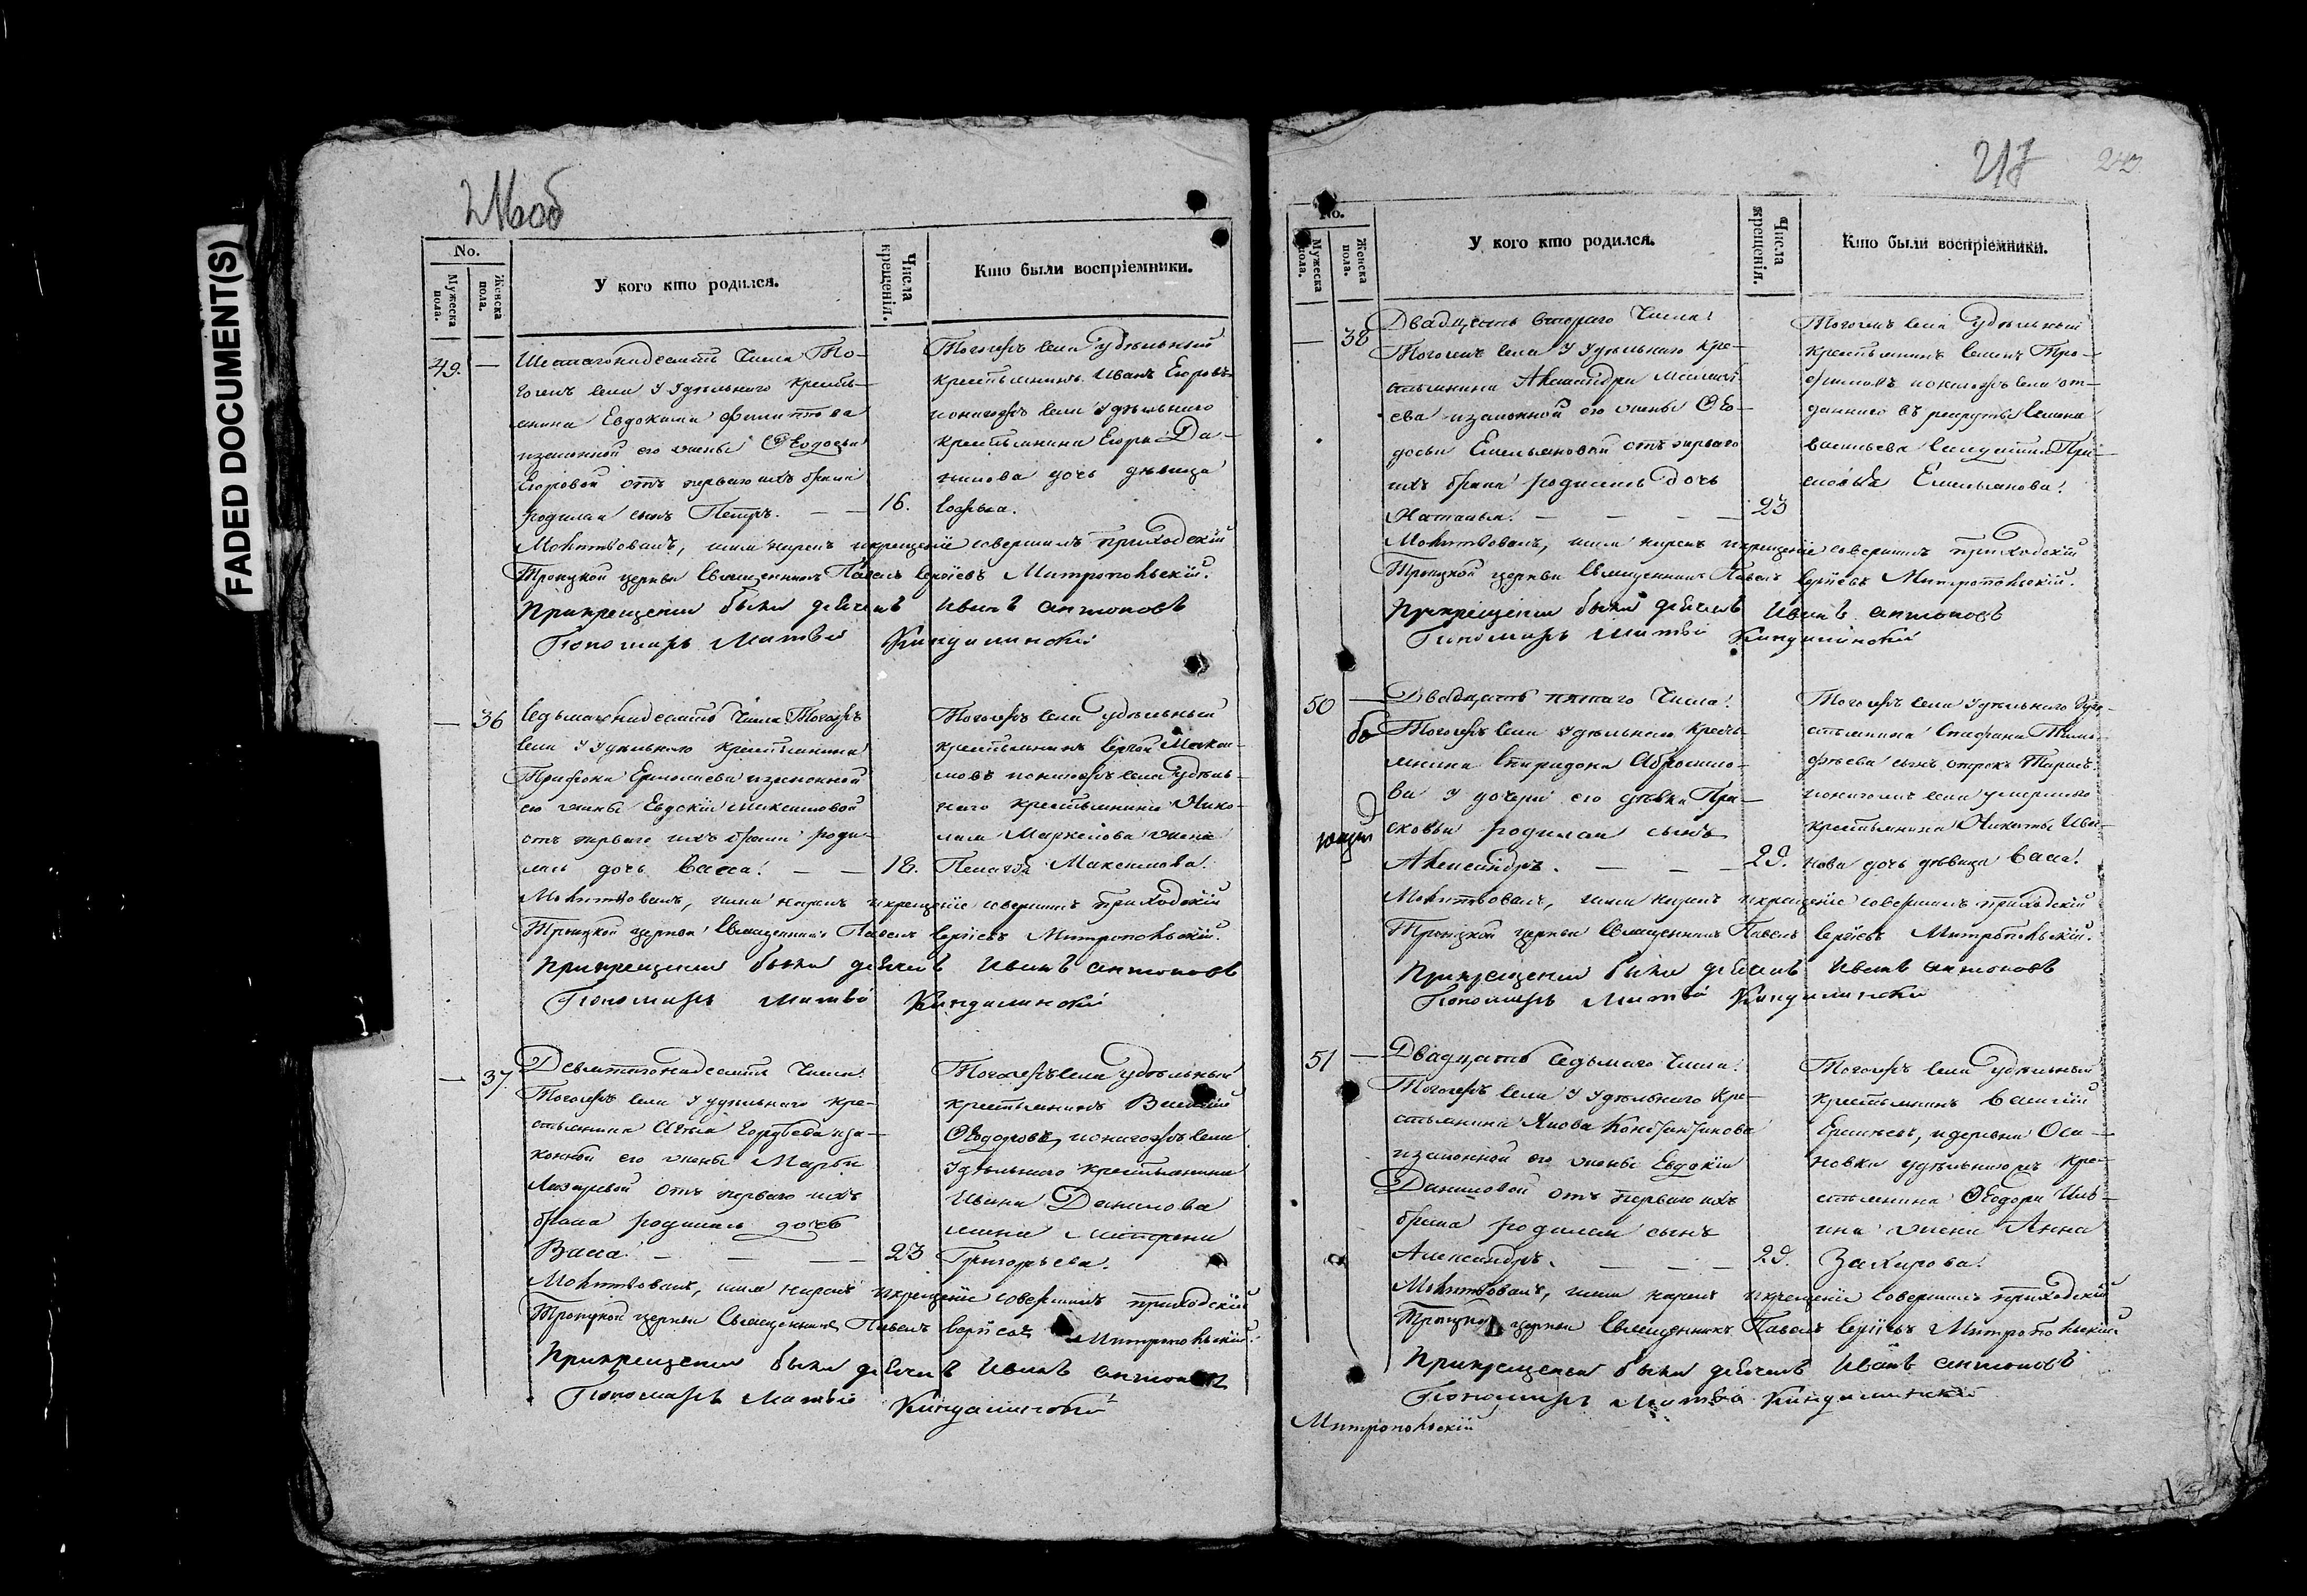 FADED DOCUMENT(S)
216 об
No.
Мужеска пола.
Женска пола.
У кого кто родился.
Числа крещенія.
Кто были воспріемники.
49. —
Шестагонадесять числа То-
гожъ села у Удѣльнаго кресть-
янина Евдокима Филиппова
изаконной его жены Ѳеодосьи
Егоровой отъ перваго ихъ брака
родился сынъ Петръ. — — 16.
Тогожъ села удѣльный
крестьянинъ Иванъ Егоровъ
ионагожъ села Удѣльнаго
крестьянина Егора Да-
нилова дочь дѣвица
Софья.
Молитвовалъ, имя нарекъ икрещеніе совершилъ приходскій
Троицкой церкви Священникъ Павелъ Сергіевъ Митропольскій.
Прикрещеніи были дьячекъ Иванъ Антоновъ
Пономарь Матвей
— 36
Седьмагонадесять числа Тогожъ
села у Удѣльнаго крестьянина
Трифона Ермолаева изаконной
его жены Евдокіи Максимовой
отъ перваго ихъ брака роди-
лась дочь Васса. — — 18.
Тогожъ села удѣльный
крестьянинъ Сергей
ионагожъ села Удѣль-
наго крестьянина Нико-
лая Маркелова жена
Пелагея Максимова.
Молитвовалъ, имя нарекъ икрещеніе совершилъ приходскій
Троицкой церкви Священникъ Павелъ Сергіевъ Митропольскій.
Прикрещеніи были дьячекъ Иванъ Антоновъ
Пономарь Матвей
— 37.
Девятогонадесять числа.
Тогожъ села у удѣльнаго кре-
стьянина иза-
конной его жены Марѳы
Лазаревой отъ перваго ихъ
брака родилась дочь
Васса. — — — 23
Тогожъ села удѣльный
крестьянинъ Василій
Ѳедоровъ, ионагожъ села
Удѣльнаго крестьянина
Ивана Данилова
жена Матрена
Григорьева.
Молитвовалъ, имя нарекъ икрещеніе совершилъ приходскій
Троицкой церкви Священникъ Павелъ Сергіевъ Митропольскій.
Прикрещеніи были дьячекъ Иванъ Антоновъ
Пономарь Матвей
217
No.
Мужеска пола.
Женска пола.
У кого кто родился.
Числа крещенія.
Кто были воспріемники.
— 38
Двадцать втораго числа.
Тогожъ села у Удѣльнаго кре-
стьянина Александра
изаконной его жены Ѳео-
досьи Емельяновой отъ перваго
ихъ брака родилась дочь
Наталья. — — — — 23
Тогожъ села удѣльный
крестьянинъ Семенъ Тро-
фимовъ ионагожъ села от-
даннаго въ рекруты Семена
Васильева Пра-
сковья Емельянова.
Молитвовалъ, имя нарекъ икрещеніе совершилъ приходскій
Троицкой церкви Священникъ Павелъ Сергіевъ Митропольскій.
Прикрещеніи были дьячекъ Иванъ Антоновъ
Пономарь Матвей
50 —
Двадцать пятаго числа.
Тогожъ села удѣльнаго кресть-
янина Спиридона Абрамо-
ва у дочери его дѣвки Пра-
сковьи родился сынъ
Александръ. — — — 29.
Тогожъ села Удѣльнаго кре-
стьянина Стефана Тимо-
феева сынъ отрокъ
ионагожъ села умершаго
крестьянина Никиты Ива-
нова дочь дѣвица Васса.
Молитвовалъ, имя нарекъ икрещеніе совершилъ приходскій
Троицкой церкви Священникъ Павелъ Сергіевъ Митропольскій.
Прикрещеніи были дьячекъ Иванъ Антоновъ
Пономарь Матвей
51 —
Двадцать седьмаго числа.
Тогожъ села у Удѣльнаго кре-
стьянина Якова Константинова
изаконной его жены Евдокіи
Даниловой отъ перваго ихъ
брака родился сынъ
Александръ. — — — 29.
Тогожъ села удѣльный
крестьянинъ Василій
идеревни Оси-
новки удѣльнагожъ кре-
стьянина Ѳеодора Иль-
ина жена Анна
Захарова.
Молитвовалъ, имя нарекъ икрещеніе совершилъ приходскій
Троицкой церкви Священникъ Павелъ Сергіевъ Митропольскій.
Прикрещеніи были дьячекъ Иванъ Антоновъ
Пономарь Матвей
Митропольскій